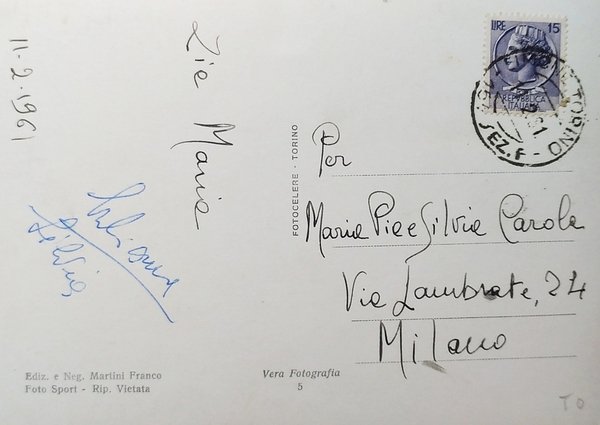 11-2-1961
Zie Maria
Silvia
FOTOCELERE - TORINO
LIRE 15
REPUBBLICA
ITALIANA
TORINO
SEZ. F
Per
Maria Pia e Silvia Carola
Via Lambrate, 24
Milano
Ediz. e Neg. Martini Franco
Foto Sport - Rip. Vietata
Vera Fotografia
5
TO